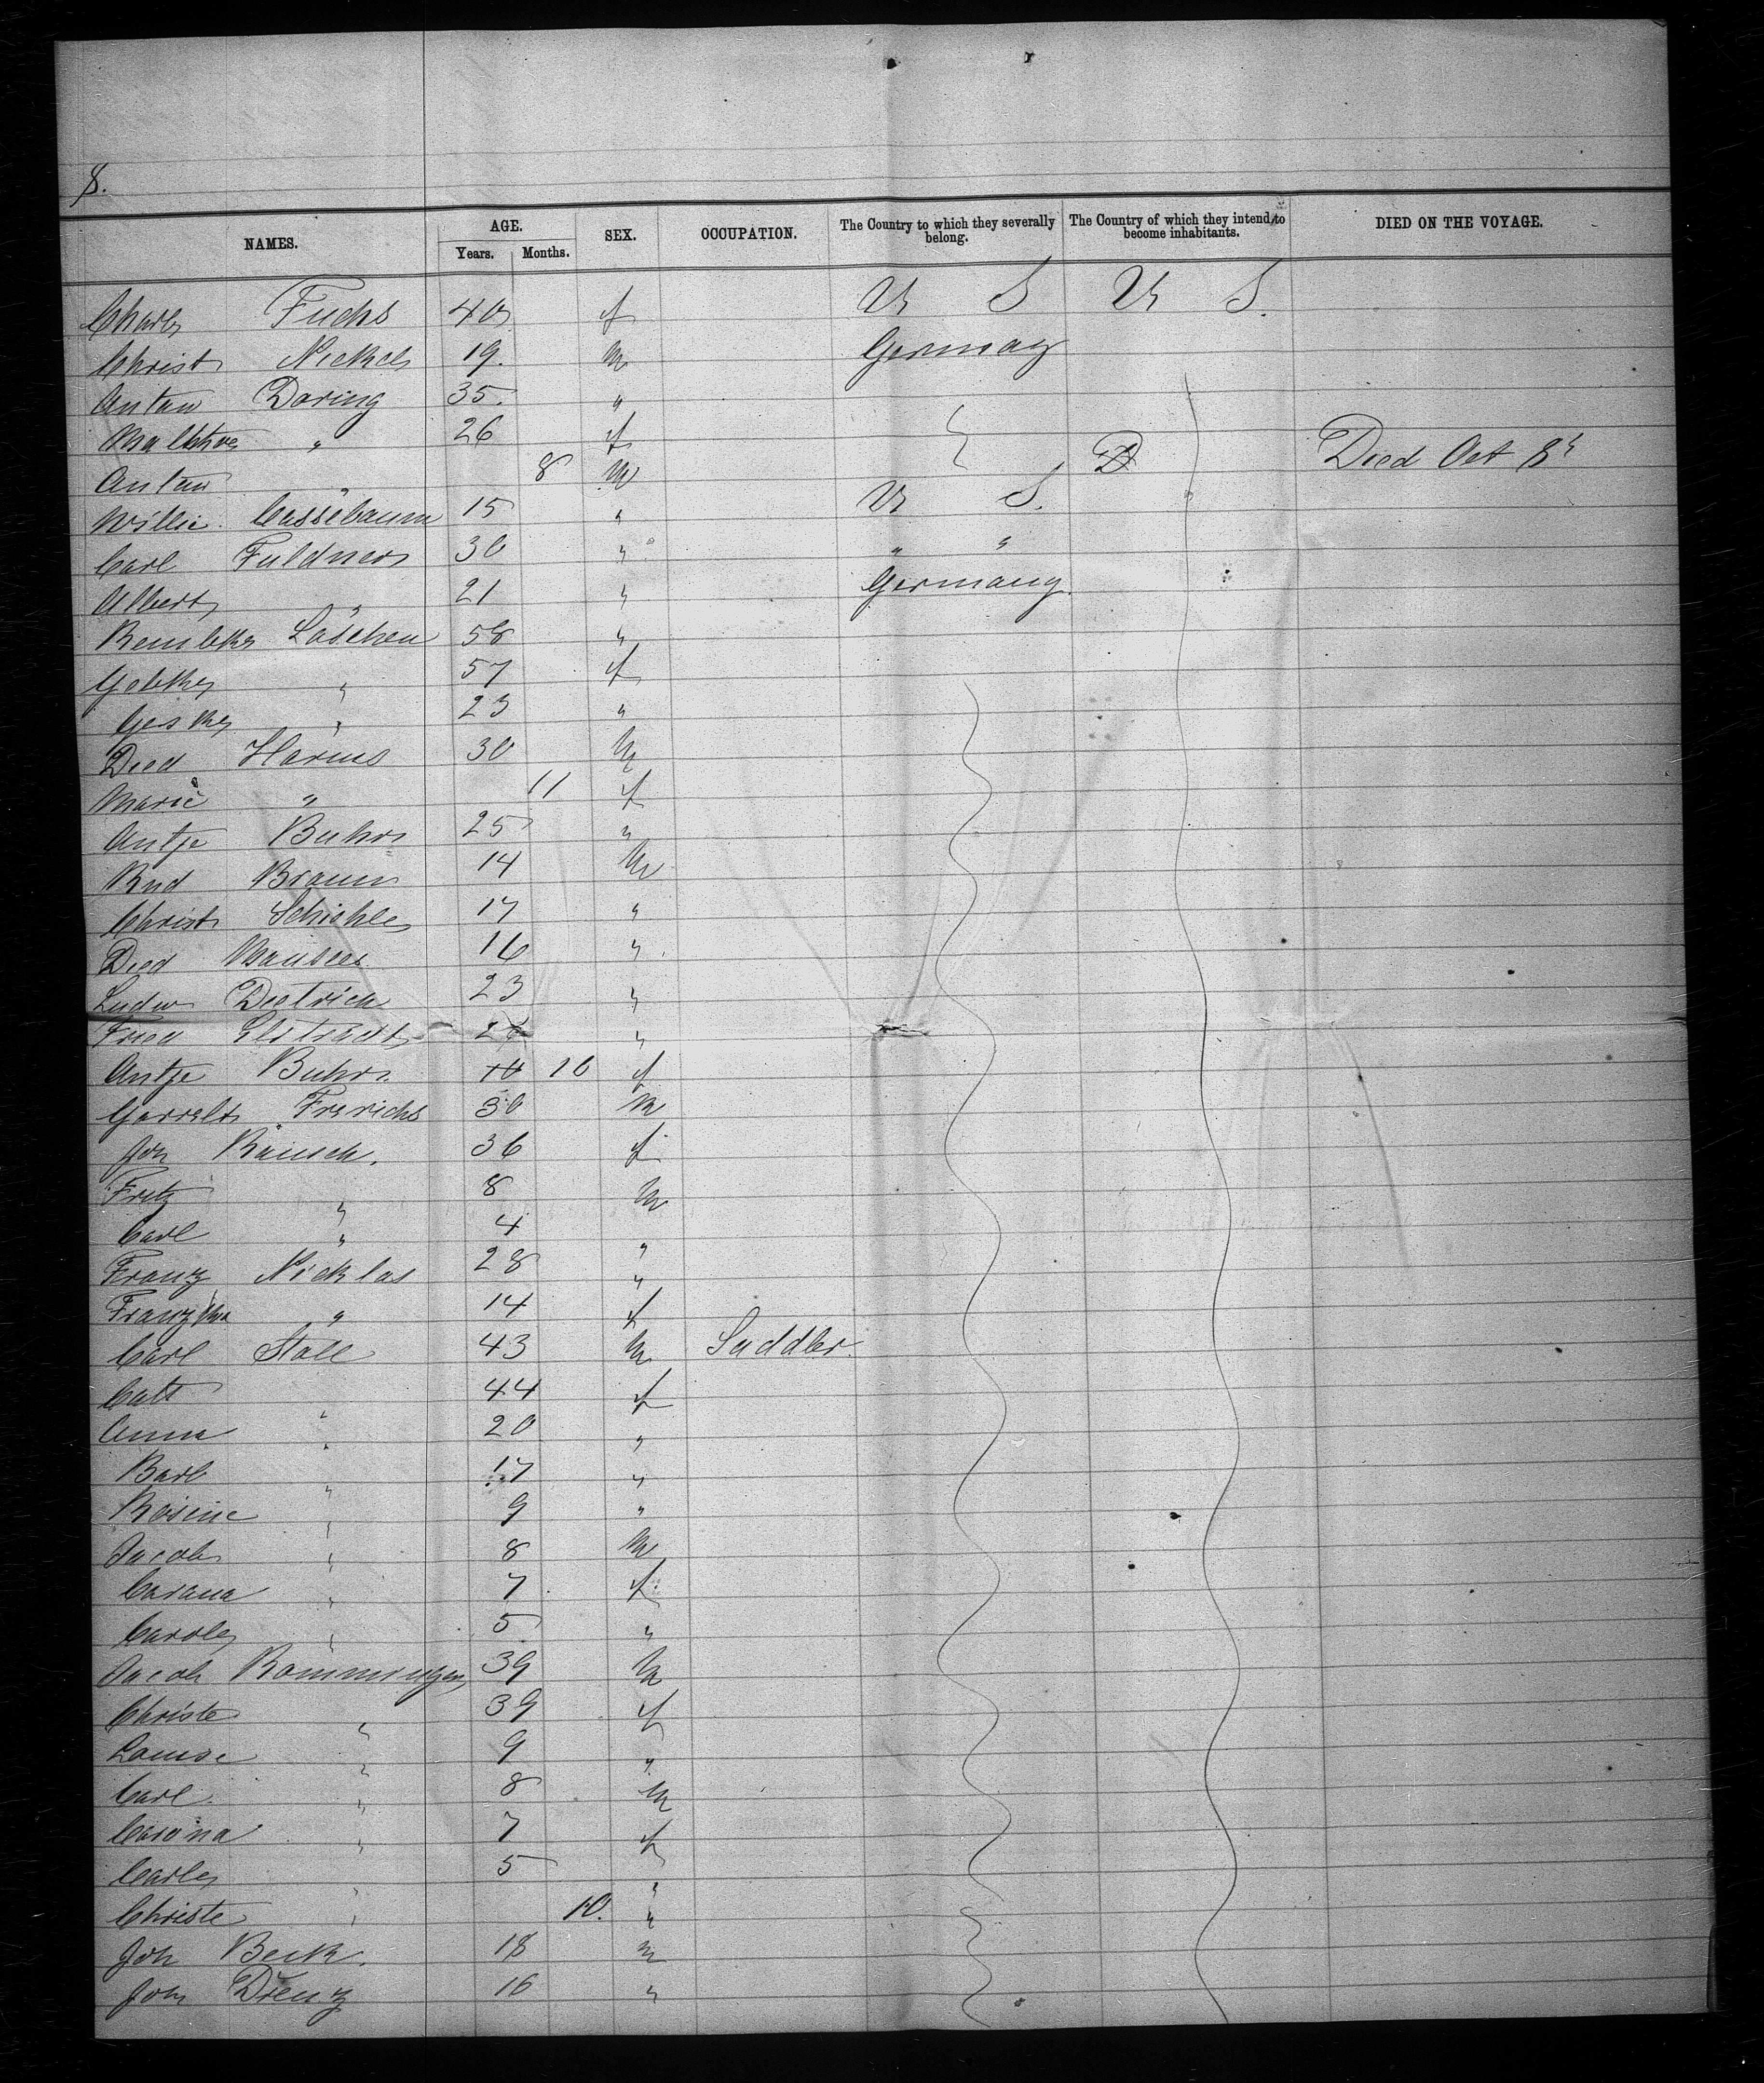 8.
NAMES. AGE. SEX. OCCUPATION. The Country to which they severally belong. The Country of which they intend to become inhabitants. DIED ON THE VOYAGE.
Years. Months.
Fuchs 40 f U S U S.
Christ Nickels 19. m Germany
Anton Doring 35. "
" 26 f
Anton " 8 m D Died Oct 8
Willie Cassebaum 15 " U S.
Carl Fuldner 30 " " "
Albert " 21 " Germany.
Laschen 58 "
" 57 f
" 23 "
Died Harms 30 m
Marie " 11 f
Antje Buhrs 25 "
Rud Braun 14 m
Christ 17 "
Died 16 "
Ludw Dietrich 23 "
Fried "
Antje Buhrs 10 f
Garrelt Frerichs 30 m
Joh Rausch. 36 f
Fritz " 8 m
Carl " 4 "
Franz Nicklas 28 "
Franzka " 14 f
Carl Stoll 43 m Saddler
Cath " 44 f
Anna " 20 "
Barb " 17 "
Rosine " 9 "
Jacob " 8 m
" 7 f
" 5 "
Jacob 39 m
Christe " 39 f
Louise " 9 "
Carl " 8 m
" 7 f
" 5 "
Christe " 10. "
Joh Beck. 18 m
Joh Dienz 16 "